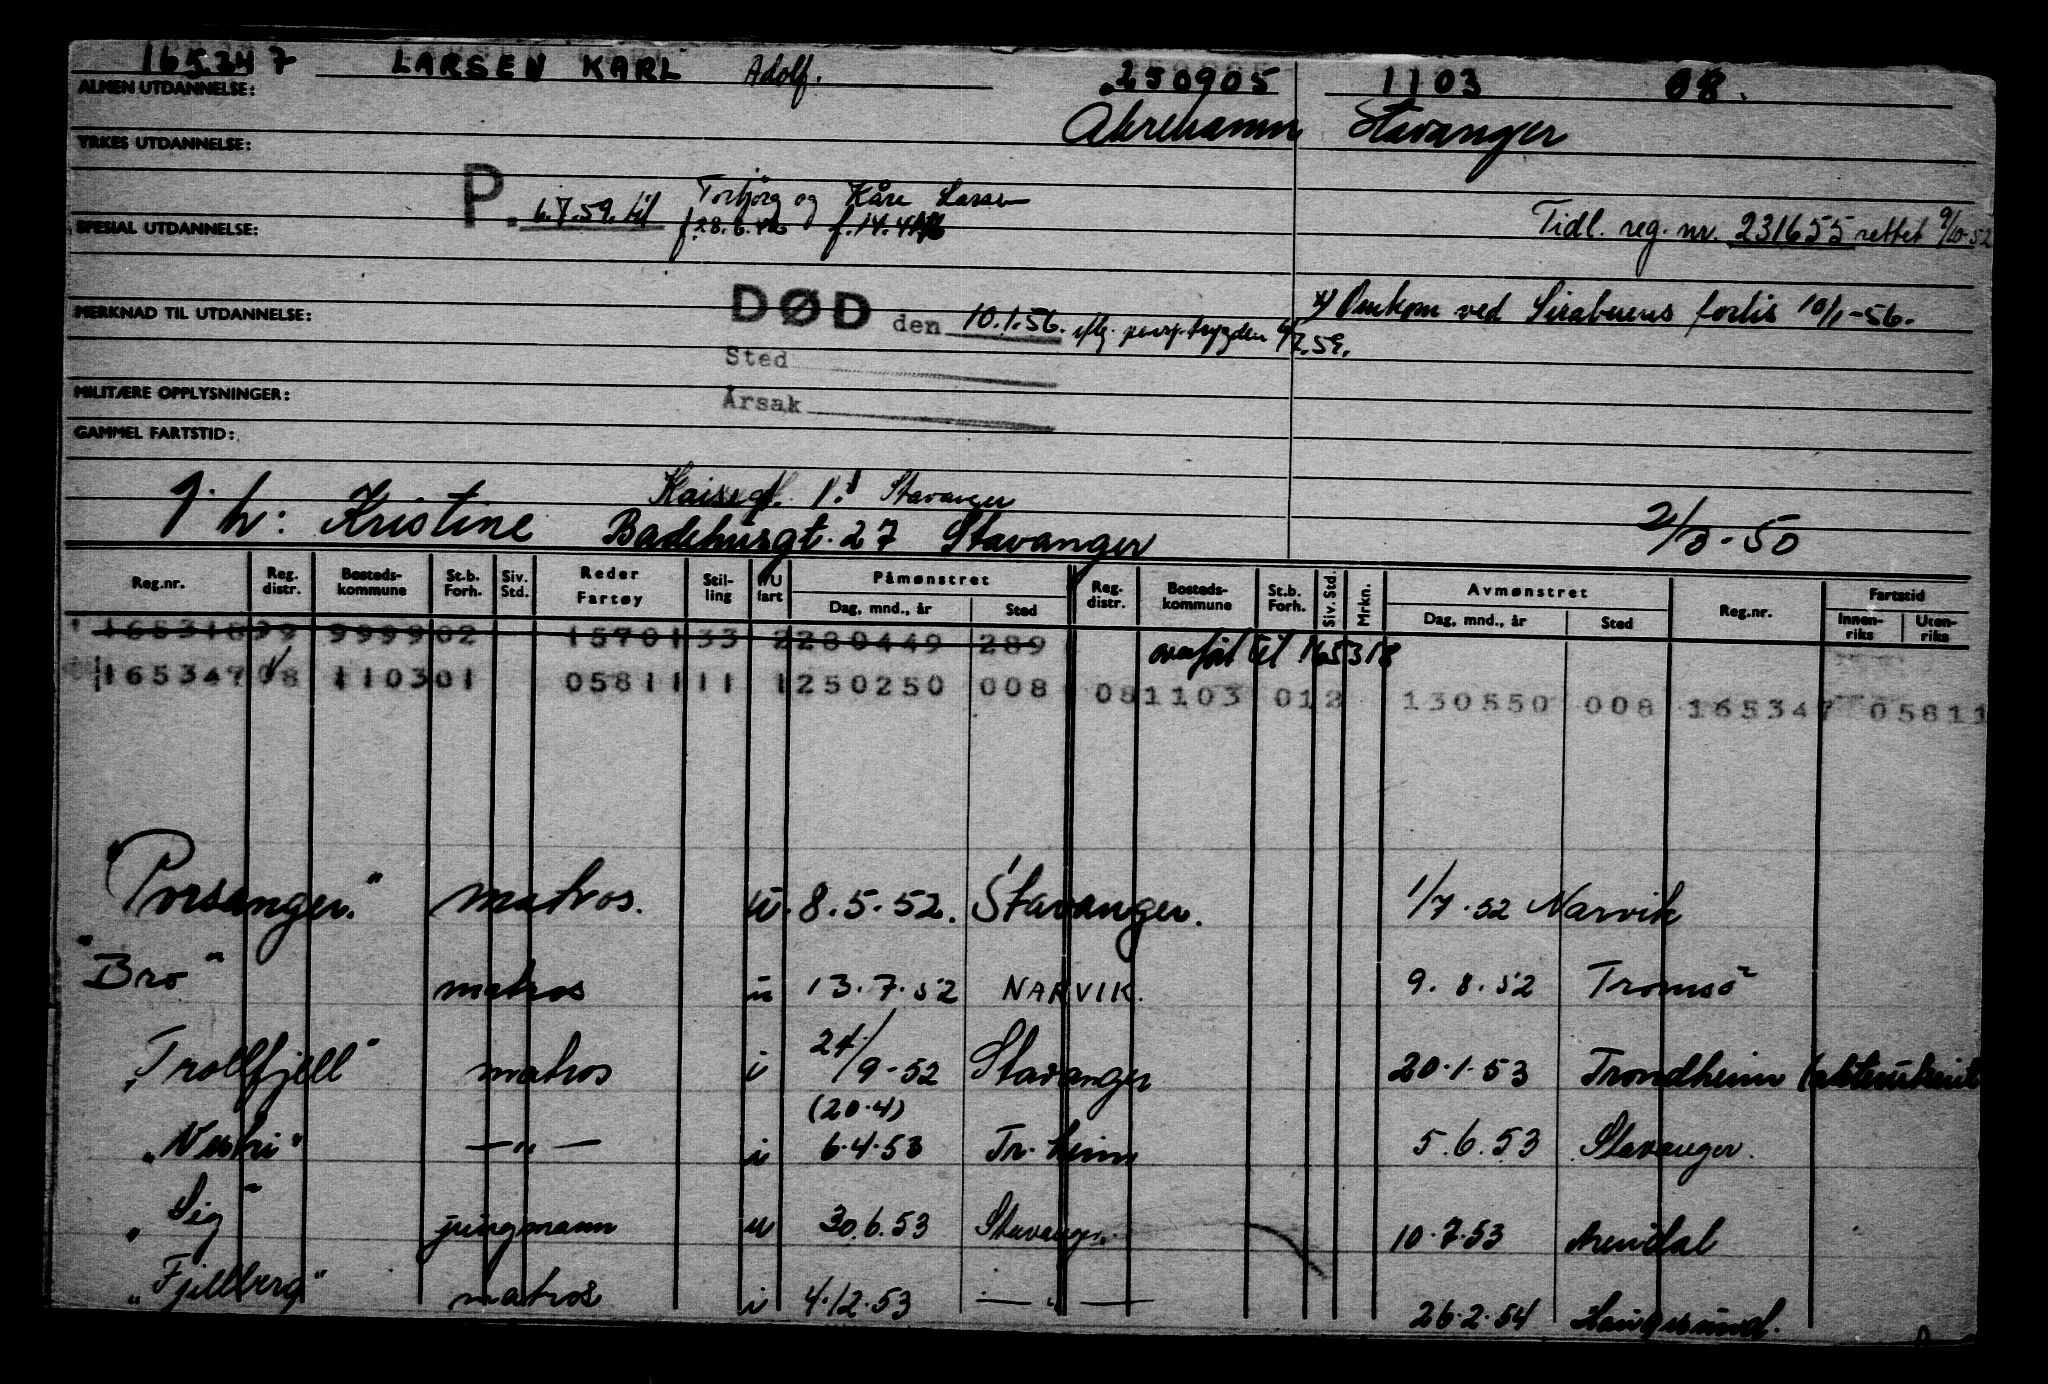 165347 LARSEN KARL Adolf. 250905 1103 08.
ALMEN UTDANNELSE:
Åkrehamn Stavanger
YRKES UTDANNELSE:
P. 6.7.59. til Torbjørg og Kåre Larsen
f. 28.6.46 f. 14.4.46
Tidl. reg. nr. 231655 rettet 9/10-52
SPESIAL UTDANNELSE:
MERKNAD TIL UTDANNELSE:
DØD den 10.1.56. iflg. pensj.trygden 6/7.59.
x) Omkom ved forlis 10/1-56.
Sted
Årsak
MILITÆRE OPPLYSNINGER:
GAMMEL FARTSTID:
Stavanger
g. h: Kristine Badehusgt. 27 Stavanger 2/8-50
Reg.nr. Reg. distr. Bosteds-kommune St.b. Forh. Siv. Std. Reder Fartøy Stil-ling I/U fart Påmønstret Reg. distr. Bosteds-kommune St.b. Forh. Siv. Std. Mrkn. Avmønstret Reg.nr. Fartstid
Dag, mnd., år Sted Dag, mnd., år Sted Innen-riks Uten-riks
165318 99 9999 02 15701 33 2 280449 289 overført til 165318
165347 08 1103 01 05811 11 1 250250 008 08 1103 01 2 130550 008 165347 05811
"Porsanger." matros. u. 8.5.52. Stavanger. 1/7.52 Narvik
"Bro" matros u 13.7.52 NARVIK. 9.8.52 Tromsö
"Trollfjell" matros i 24/9-52 Stavanger 20.1.53 Trondheim
(20.4)
— " — i 6.4.53 Tr.heim 5.6.53 Stavanger.
"Sig" jungmann u 30.6.53 Stavanger. 10.7.53 Arendal
"Fjellberg" matros i 4.12.53 — " — 26.2.54 Haugesund.